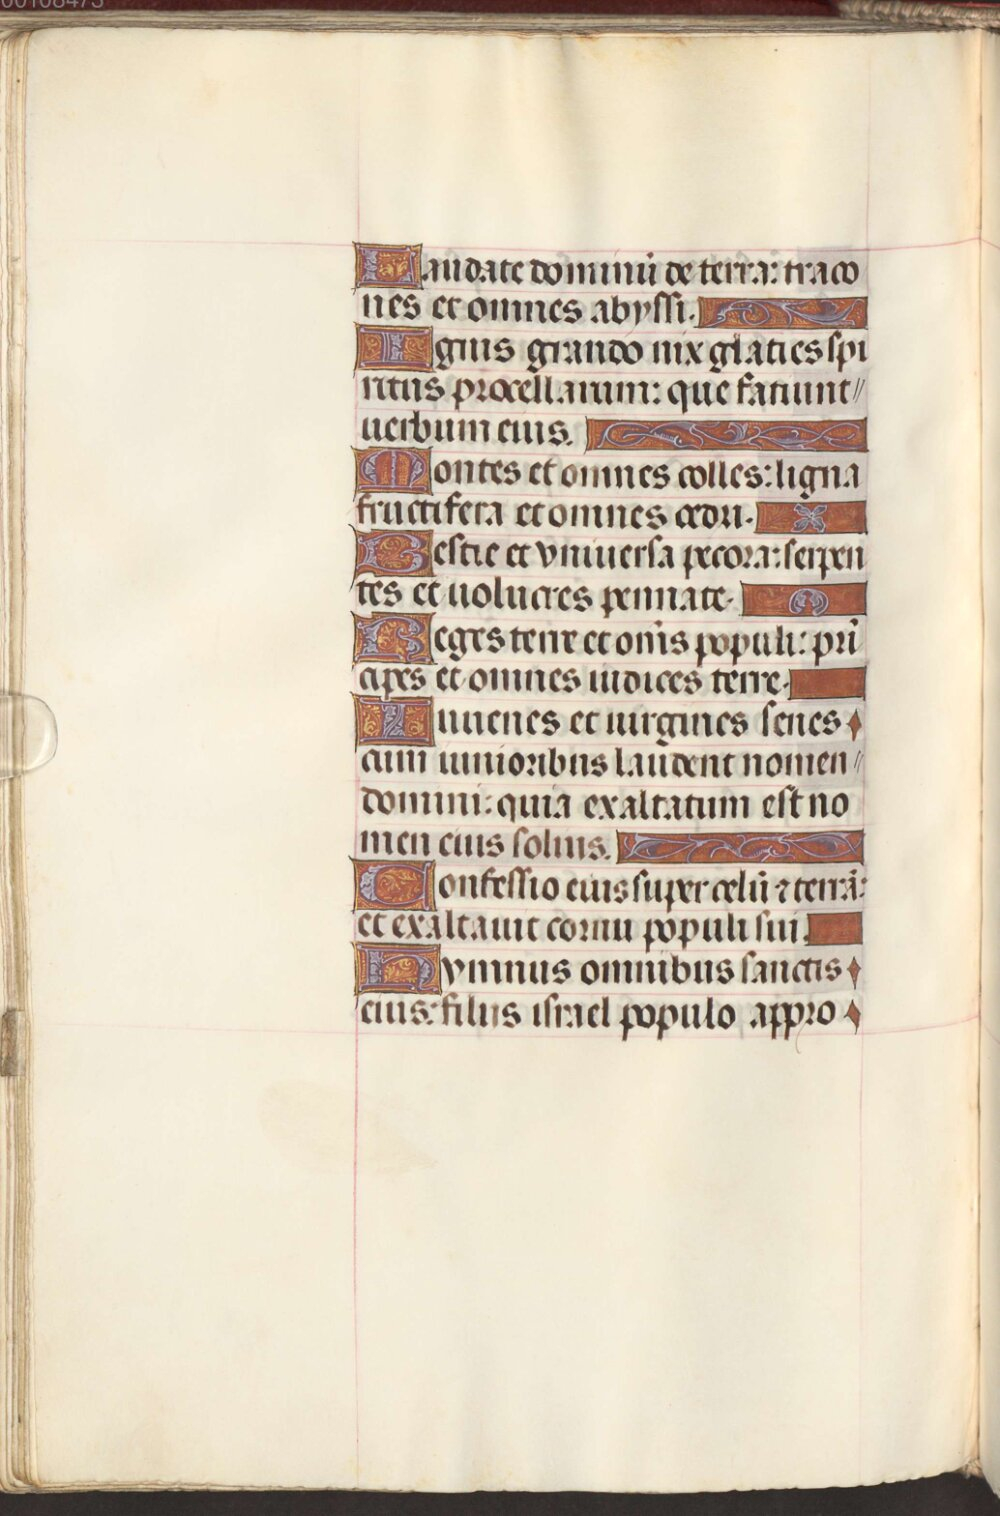 00108473
Laudate dominū de terra: traco
nes et omnes abyssi.
Ignis grando nix glacies spi
ritus procellarum: que faciunt//
uerbum eius.
Montes et omnes colles: ligna
fructifera et omnes cedri.
Bestie et vniuersa pecora: serpen
tes et uolucres pennate.
Reges terre et om̄s populi: prī
cipes et omnes iudices terre.
Iuuenes et uirgines senes
cum iunioribus laudent nomen//
domini: quia exaltatum est no
men eius solius.
Confessio eius super celū ⁊ terrā:
et exaltauit cornu populi sui.
Hymnus omnibus sanctis
eius: filiis israel populo appro